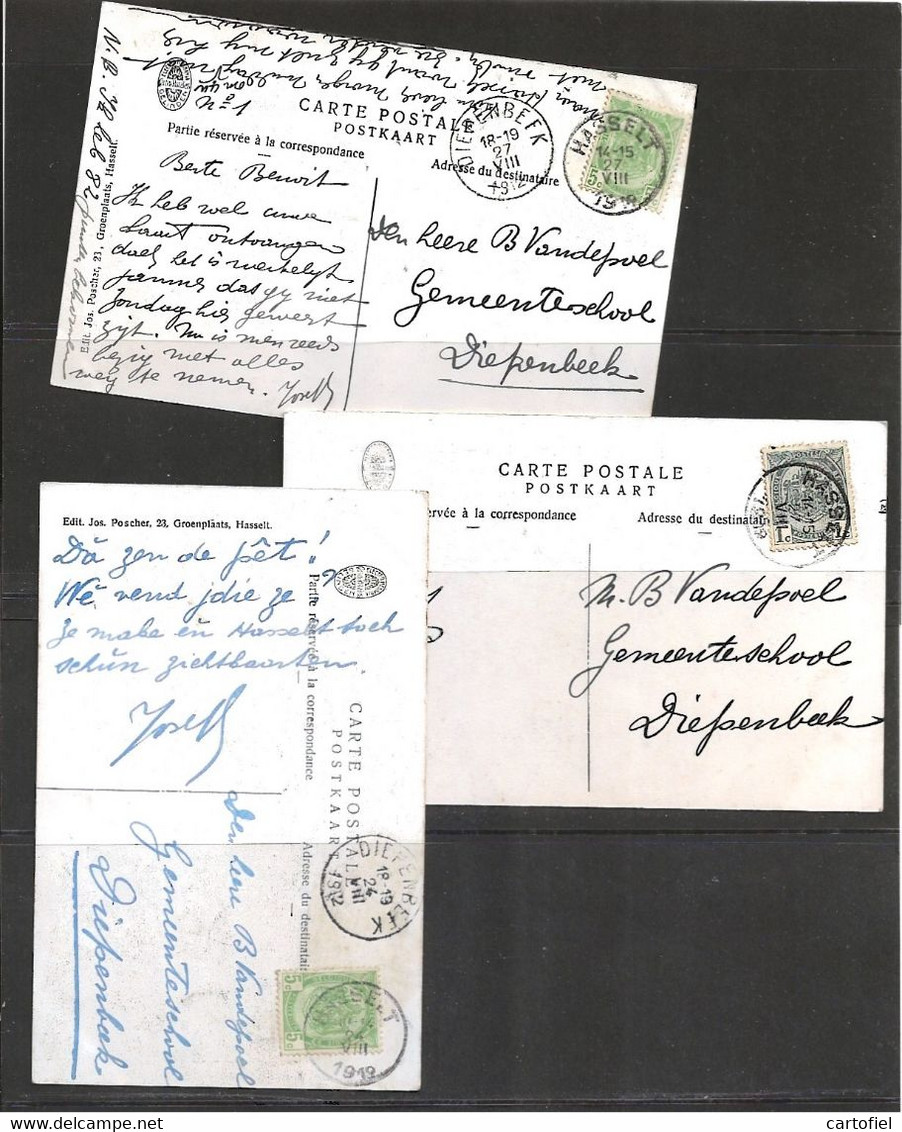 N.B.
CARTE POSTALE
POSTKAART
Partie réservée à la correspondance
Adresse du destinataire
DIEPENBEEK
18-19
27
VIII
1912
HASSELT
14-15
27
VIII
19
5c
Edit. Jos. Poscher, 23, Groenplaats, Hasselt.
Beste Benoit
Ik heb wel uwe
kaart ontvangen
doch het is werkelijk
jammer dat gy niet
zondag hier geweest
zijt. Nu is men reeds
bezig met alles
weg te nemen. Josef
Den heere B Vandepoel
Gemeenteschool
Diepenbeek
CARTE POSTALE
POSTKAART
ervée à la correspondance
Adresse du destinatair
HASSELT
14-15
VIII
1c
M. B Vandepoel
Gemeenteschool
Diepenbeek
Edit. Jos. Poscher, 23, Groenplaats, Hasselt.
Dâ zen de pêt!
Wê vend jdie ze?
Ze make en Hasselt toch
schün zichtkaarten.
Josef
Partie réservée à la correspondance
CARTE POSTALE
POSTKAART
Adresse du destinatai
DIEPENBEEK
18-19
24
VIII
1912
5c 5c
HASSELT
VIII
1912
Den heere B Vandepoel
Gemeenteschool
Diepenbeek
cartofiel